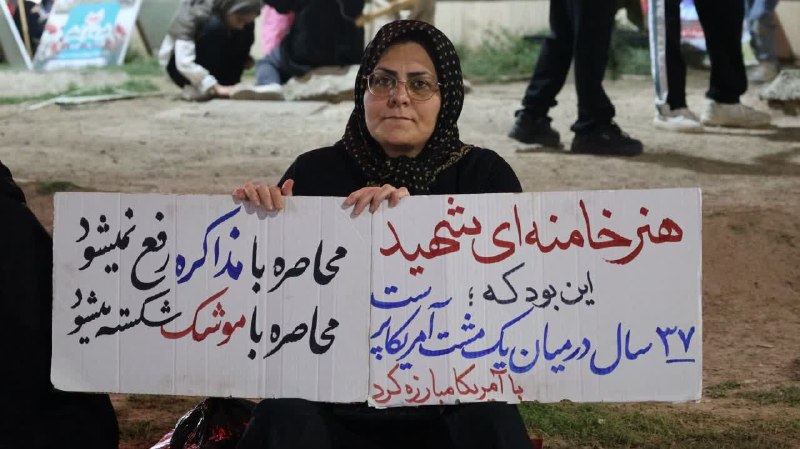 هنر خامنه ای شهید
این بود که ؛
۳۷ سال درمیان یک مشت آمریکاپرست
با آمریکا مبارزه کرد
محاصره با مذاکره رفع نمیشود
محاصره با موشک شکسته میشود